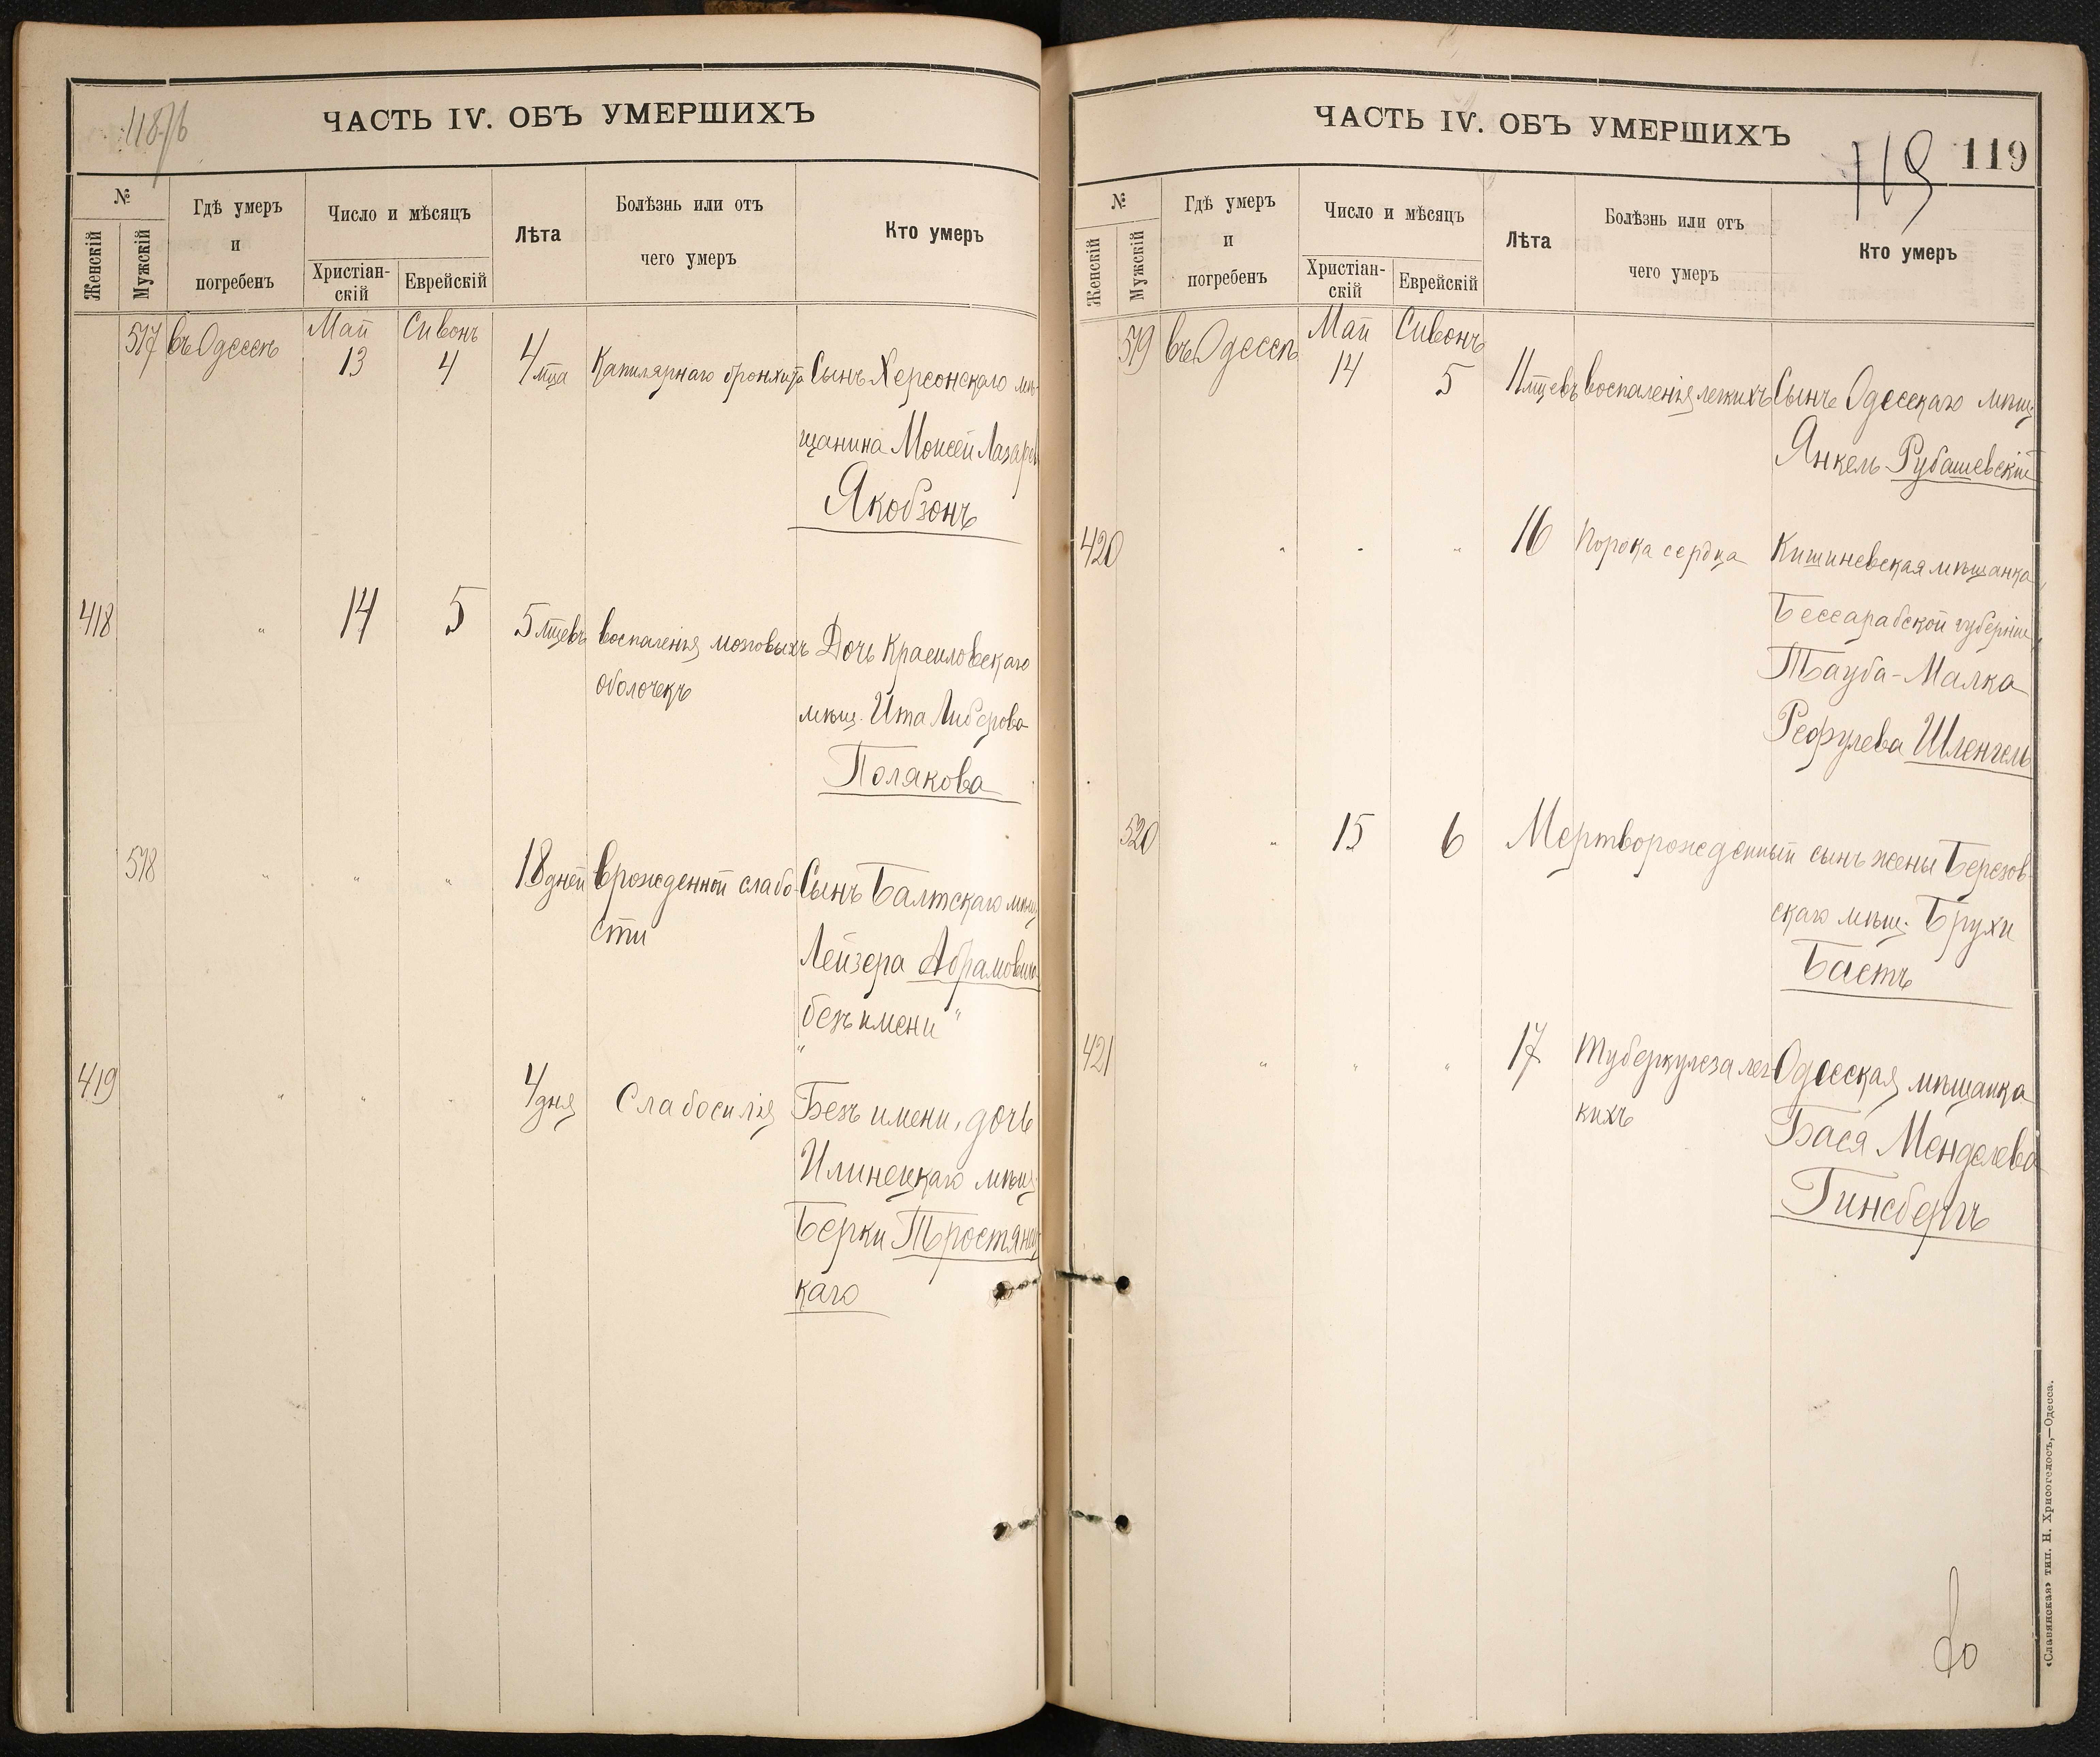 118/б
ЧАСТЬ IV. ОБЪ УМЕРШИХЪ
№
Женскій
Мужскій
Гдѣ умеръ
и
погребенъ
Число и мѣсяцъ
Христіан-
скій
Еврейскій
Лѣта
Болѣзнь или отъ
чего умеръ
Кто умеръ
517 въ Одессѣ Май Сивонъ
13 4 4 мца Капилярнаго бронхита Сынъ Херсонскаго мѣ-
щанина Моисей Лазаров
Якобзонъ
418 " 14 5 5 мцевъ воспаленія мозговыхъ Дочь Красиловскаго
оболочекъ
мѣщ. Ита Либерова
Полякова
518 " " " 18 дней врожденной слабо- Сынъ Балтскаго мѣщ.
сти
Лейзера Абрамович
безъ имени "
419 " " " 4 дня Слабосилія Безъ имени, дочь
Илинецкаго мѣщ.
Берки Тростянец
каго
ЧАСТЬ IV. ОБЪ УМЕРШИХЪ
119 119
№
Женскій
Мужскій
Гдѣ умеръ
и
погребенъ
Число и мѣсяцъ
Христіан-
скій
Еврейскій
Лѣта
Болѣзнь или отъ
чего умеръ
Кто умеръ
519 въ Одессѣ Май Сивонъ
14 5 11 мцевъ воспаленія легкихъ Сынъ Одесскаго мѣщ.
Янкель Рубашевскій
420 " " " 16 Порока сердца Кишиневская мѣщанка,
Бессарабской губерніи,
Тауба-Малка
Рефулева Шленгель
520 " 15 6 Мертворожденный сынъ жены Березов-
скаго мѣщ. Брухи
Бастъ
421 " " " 17 Туберкулеза лег- Одесская мѣщанка
кихъ
Бася Менделева
Гинсбергъ
«Славянская» тип. Н. Хрисогелосъ,—Одесса.